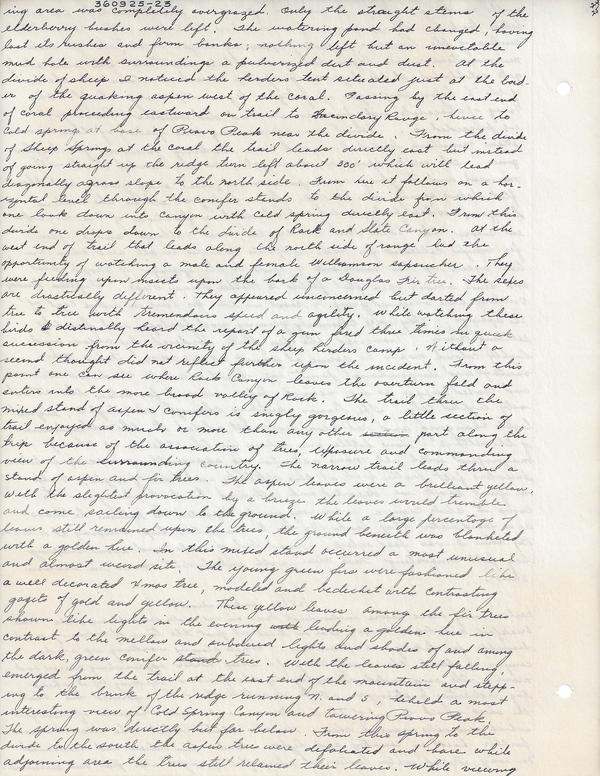 360925-23
ing area was completely overgrazed. Only the straight stems of the
elderberry bushes were left. The watering pond had changed, having
lost its rushes and firm banks; nothing left but an inevitable
mud hole with surroundings a pulverized dirt and dust. At the
divide of sheep I noticed the herders tent situated just at the bord-
er of the quaking aspen west of the coral. Passing by the east end
of coral proceeding eastward on trail to Secondary Range, hence to
Cold spring at base of Provo Peak near the divide. From the divide
of Sheep Springs at the coral the trail leads directly east but instead
of going straight up the ridge turn left about 300' which will lead
diagonally across slope to the north side. From here it follows on a hor-
izontal level through the conifer stands to the divide from which
one looks down into canyon with Cold spring directly east. From this
divide one drops down to the divide of Rock and Slate Canyon. At the
west end of trail that leads along the north side of range had the
opportunity of watching a male and female Williamson sapsucker. They
were feeding upon insects upon the bark of a Douglas Fir tree. The sexes
are drastically different. They appeared unconcerned but darted from
tree to tree with tremendous speed and agility. While watching these
birds I distinctly heard the report of a gun fired three times in quick
succession from the vicinity of the sheep herders camp. Without a
second thought did not reflect further upon the incident. From this
point one can see where Rock Canyon leaves the overturn fold and
enters into the more broad valley of Rock. The trail thru the
mixed stand of aspen & conifers is singly gorgeous, a little section of
trail enjoyed as much or more than any other part along the
trip because of the association of trees, exposure and commanding
view of the surrounding country. The narrow trail leads thru a
stand of aspen and fir trees. The aspen leaves were a brilliant yellow.
With the slightest provocation by a breeze the leaves would tremble
and come sailing down to the ground. While a large percentage of
leaves still remained upon the trees, the ground beneath was blanketed
with a golden hue. In this mixed stand occurred a most unusual
and almost weird site. The young green firs were fashioned like
a well decorated Xmas tree, modeled and bedecket with contrasting
gagets of gold and yellow. These yellow leaves among the fir trees
shown like lights in the evening lending a golden hue in
contrast to the mellow and subdued lights and shades of and among
the dark, green conifer trees. With the leaves still falling,
emerged from the trail at the east end of the mountain and stepp-
ing to the brink of the ridge running N. and S., beheld a most
interesting view of Cold Spring Canyon and towering Provo Peak.
The spring was directly but far below. From this spring to the
divide to the south the aspen trees were defoliated and bare while
adjoining area the trees still retained their leaves. While viewing